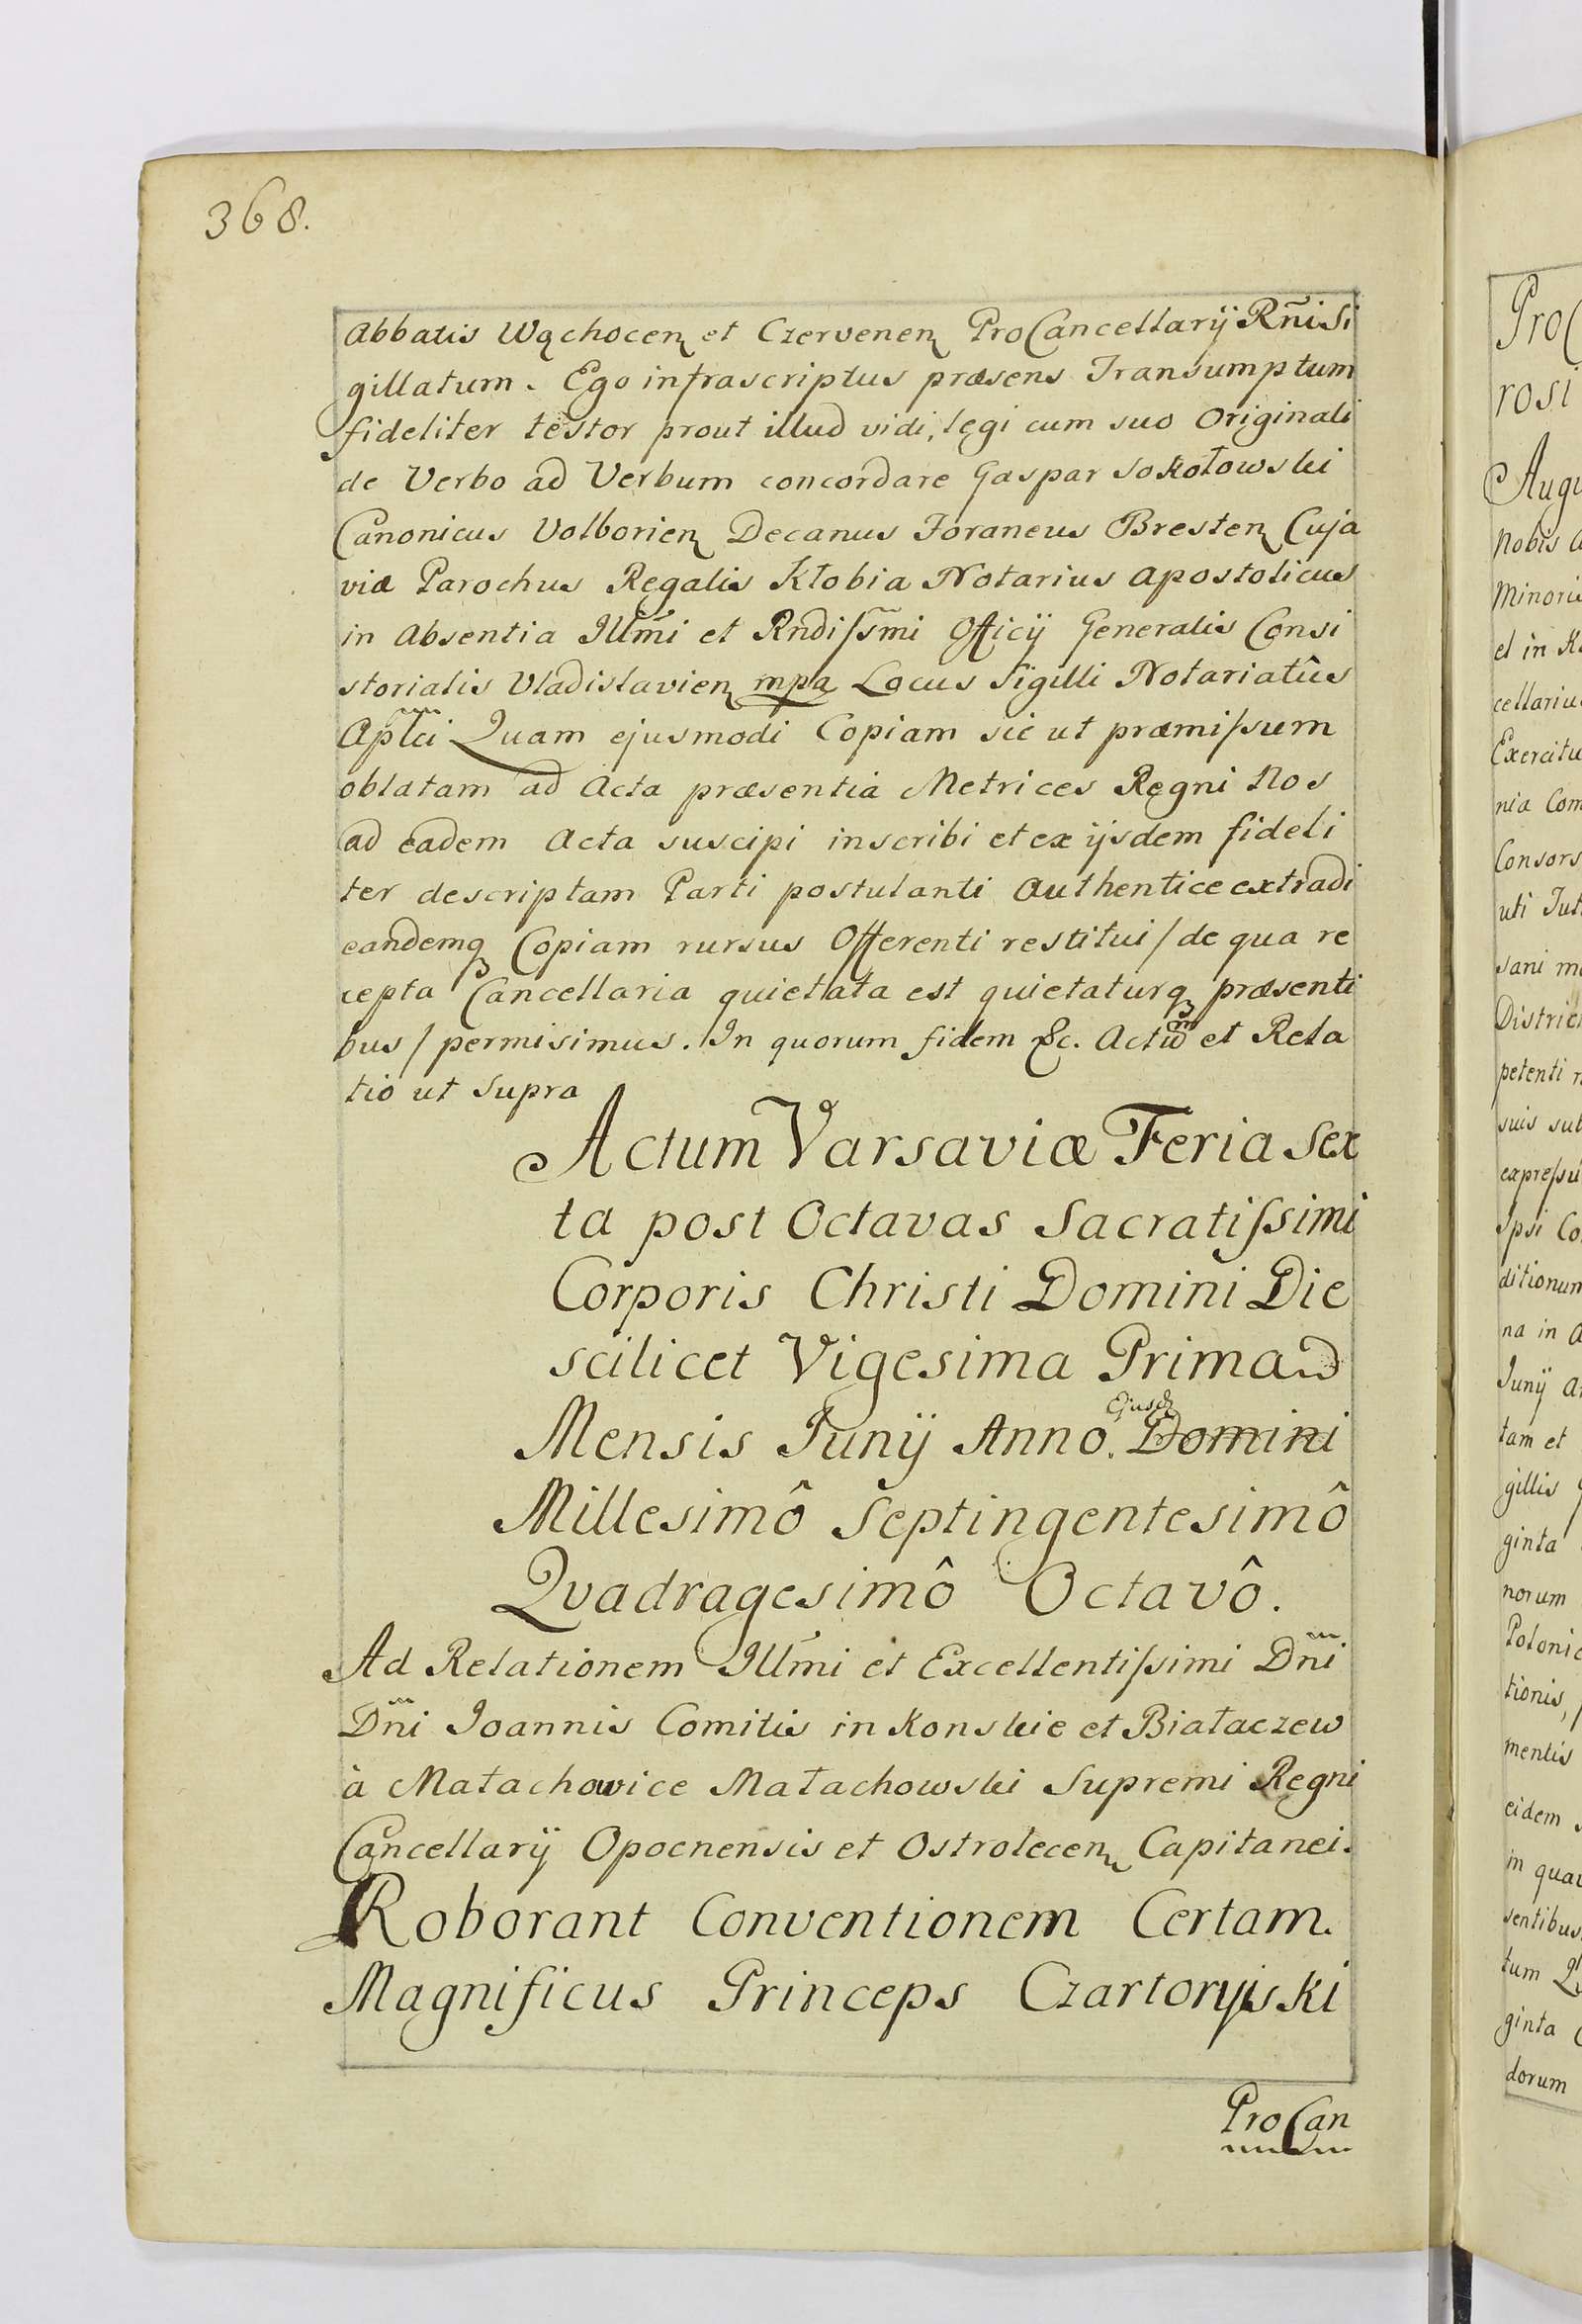 368.
Abbatis Wąchocen et Czervenen ProCancellarij Rñi Si
gillatum. Ego infrascriptus præsens Transumptum
fideliter testor prout illud vidi, legi cum suo Originali
de Verbo ad Verbum concordare Gaspar Sokołowski
Canonicus Volborien Decanus Foraneus Bresten Cuja
viæ Parochus Regalis Kłobia Notarius Apostolicus
in Absentia Illm̃i et Rndiſsm̃i Officij Generalis Consi
storialis Vladislavien mpa Locus Sigilli Notariatûs
Aplci Quam ejusmodi Copiam sic ut præmiſsum
oblatam ad Acta præsentia Metrices Regni Nos
ad eadem Acta suscipi inscribi et ex ijsdem fideli
ter descriptam Parti postulanti Authentice extradi
eandemq Copiam rursus Offerenti restitui / de qua re
cepta Cancellaria quietata est quietaturq præsenti
bus / permisimus. In quorum fidem &c. Actum et Rela
tio ut Supra
Actum Varsaviæ Feria Sex
ta post Octavas Sacratiſsimi
Corporis Christi Domini Die
scilicet Vigesima Prima
Mensis Junij Anno. Ejusd Domini
Millesimô Septingentesimô
Qvadragesimô Octavô.
Ad Relationem Illm̃i et Excellentiſsimi Dñi
Dñi Joannis Comitis in Konskie et Białaczew
à Małachowice Małachowski Supremi Regni
Cancellarij Opocnensis et Ostrolecen Capitanei.
Roborant Conventionem Certam.
Magnificus Princeps Czartoryiski
ProCan
Pro
rosi
Augu
Nobis
Minori
et in
cellariu
Exercitu
nia Com
Consors
uti Jut
sani m
Distric
petenti
suis sub
expreſsu
Ipsi Co
ditionum
na in
Junij
tam et
gillis
ginta
norum
Poloni
tionis,
mentis
eidem
in qua
sentibus
tum
ginta
dorum